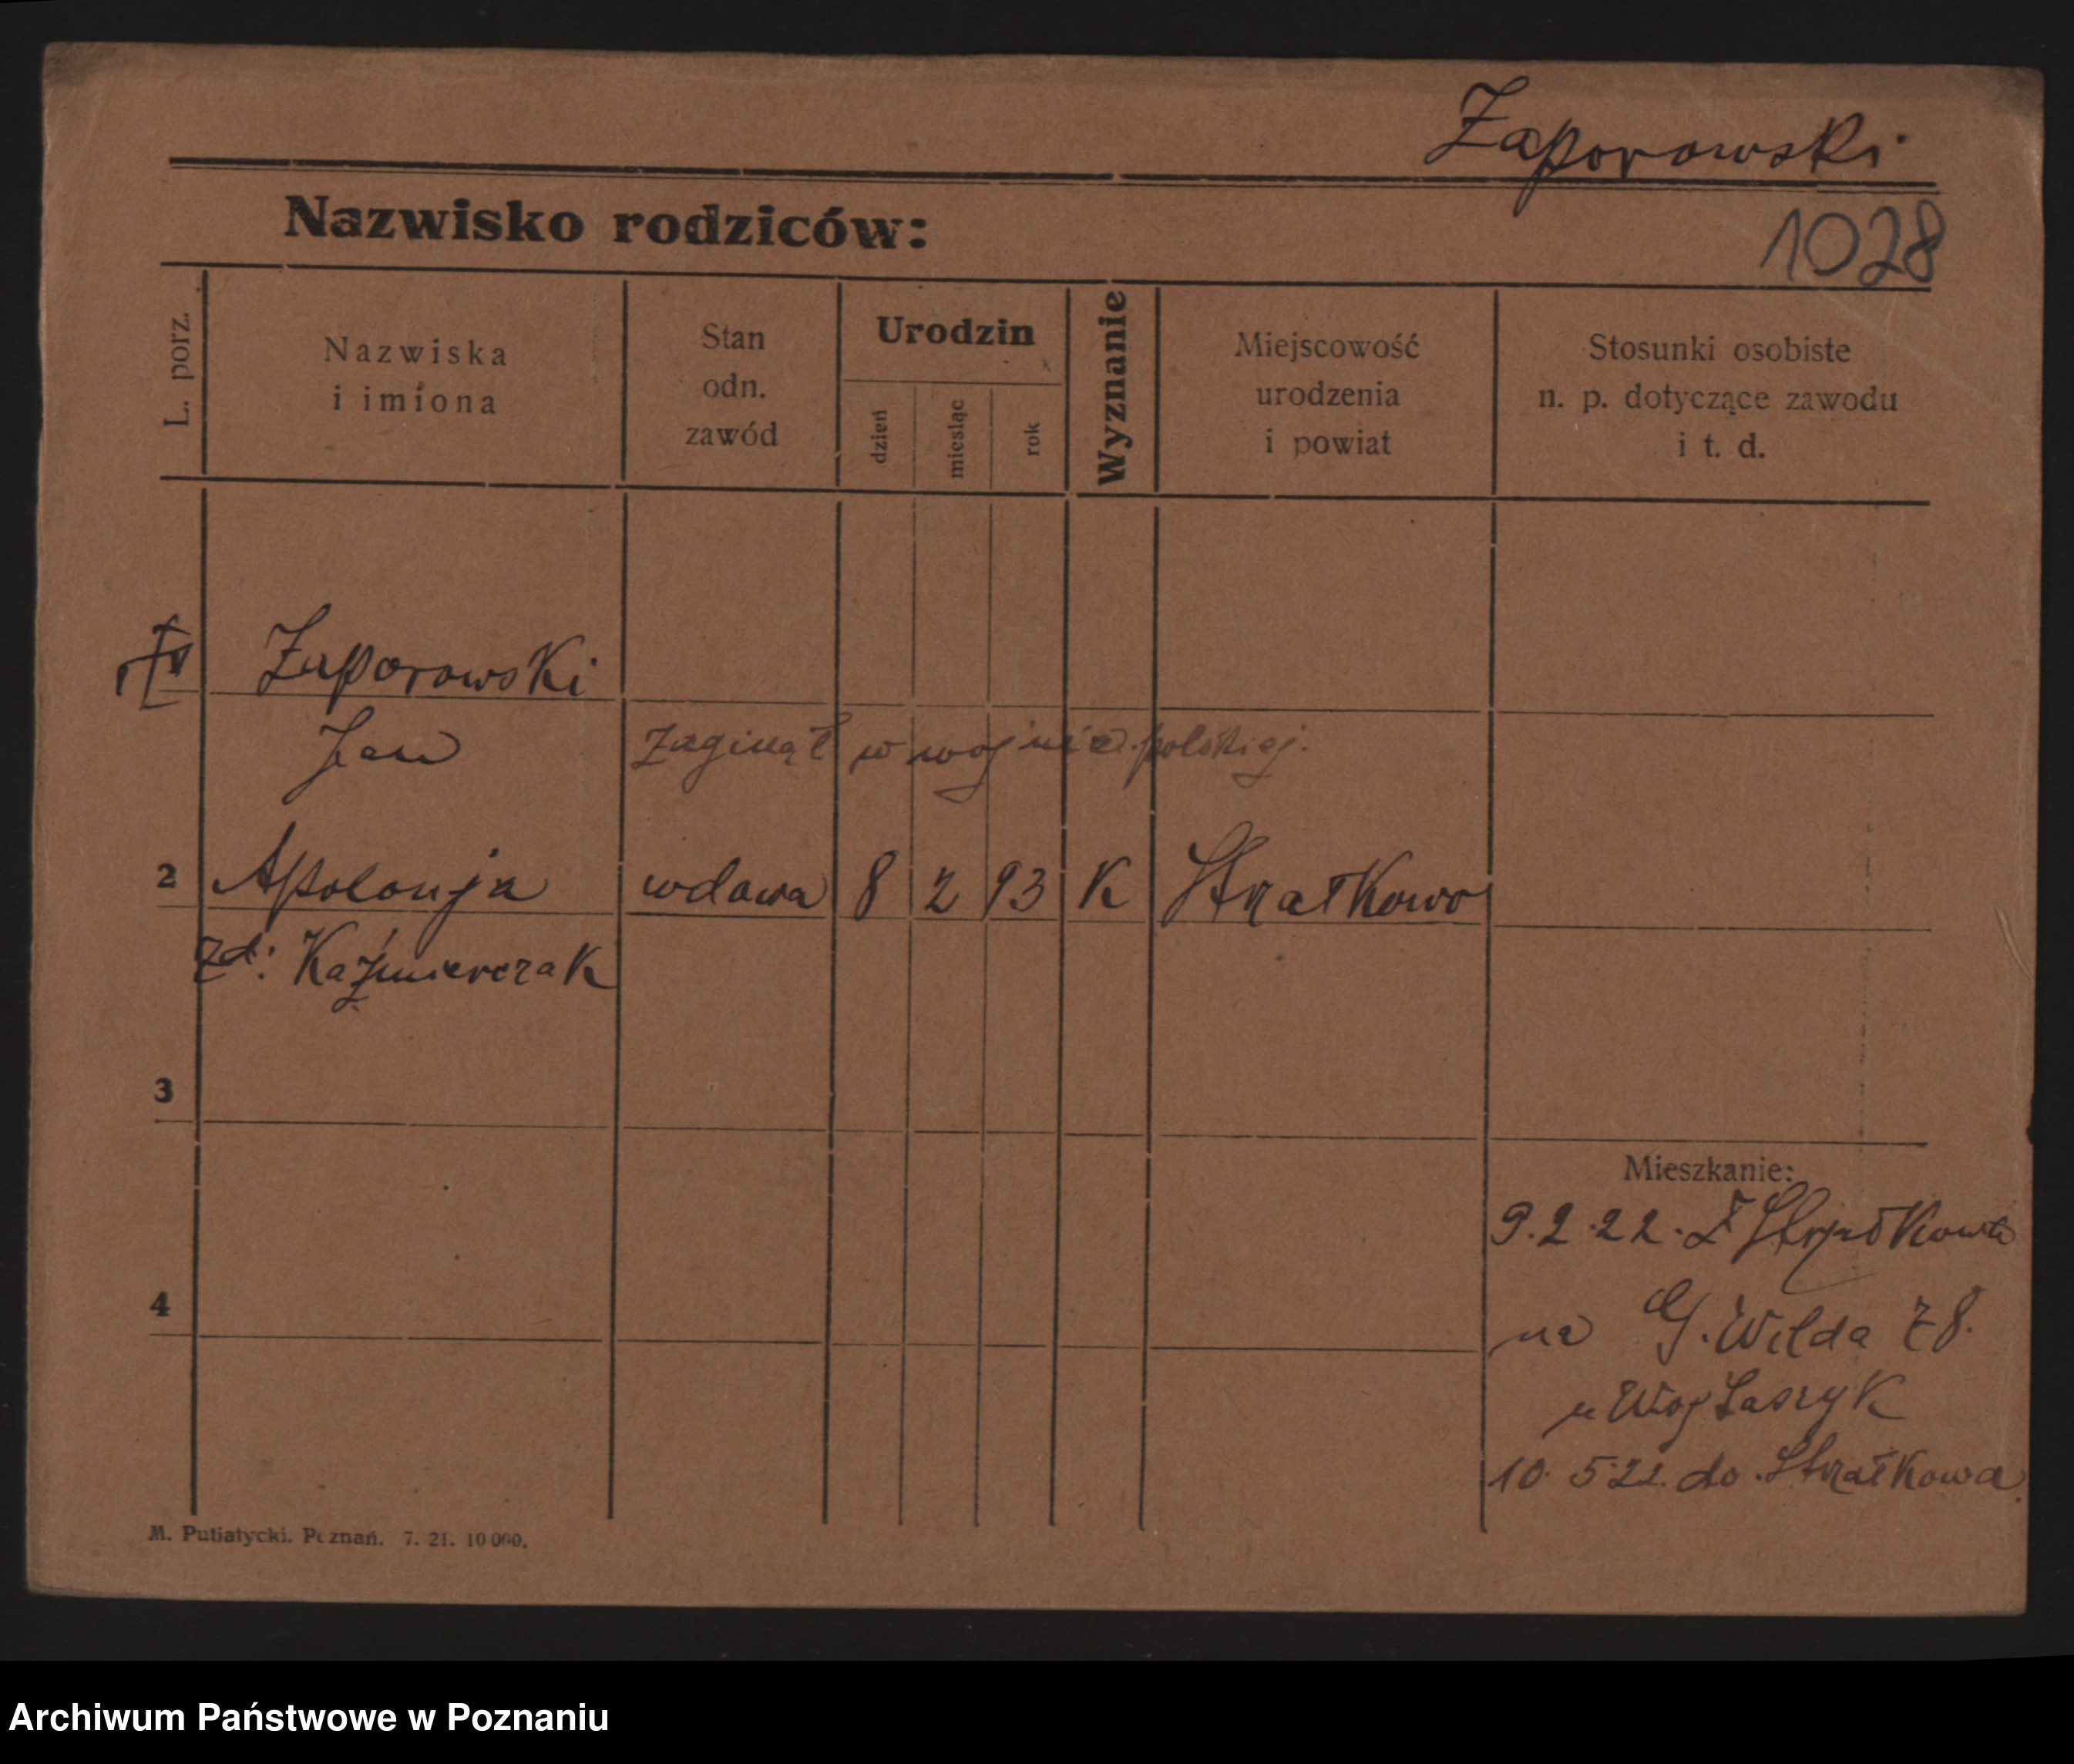 Zaporowski
Nazwisko rodziców:
1028
L. porz.
Nazwiska
i imiona
Stan
odn.
zawód
Urodzin
dzień
miesiąc
rok
Wyznanie
Miejscowość
urodzenia
i powiat
Stosunki osobiste
n. p. dotyczące zawodu
i t. d.
Zaporowski
Jan zaginął w wojnie polskiej.
2 Apolonja wdowa 8 2 93 K Strzałkowo
zd: Kaźmierczak
3
Mieszkanie:
9.2.22. Z Strzałkowa
4
na G. Wilda 78.
u Woj Łaszyk
10.5.22. do Strzałkowa.
M. Putiatycki. Poznań. 7. 21. 10 000.
Archiwum Państwowe w Poznaniu